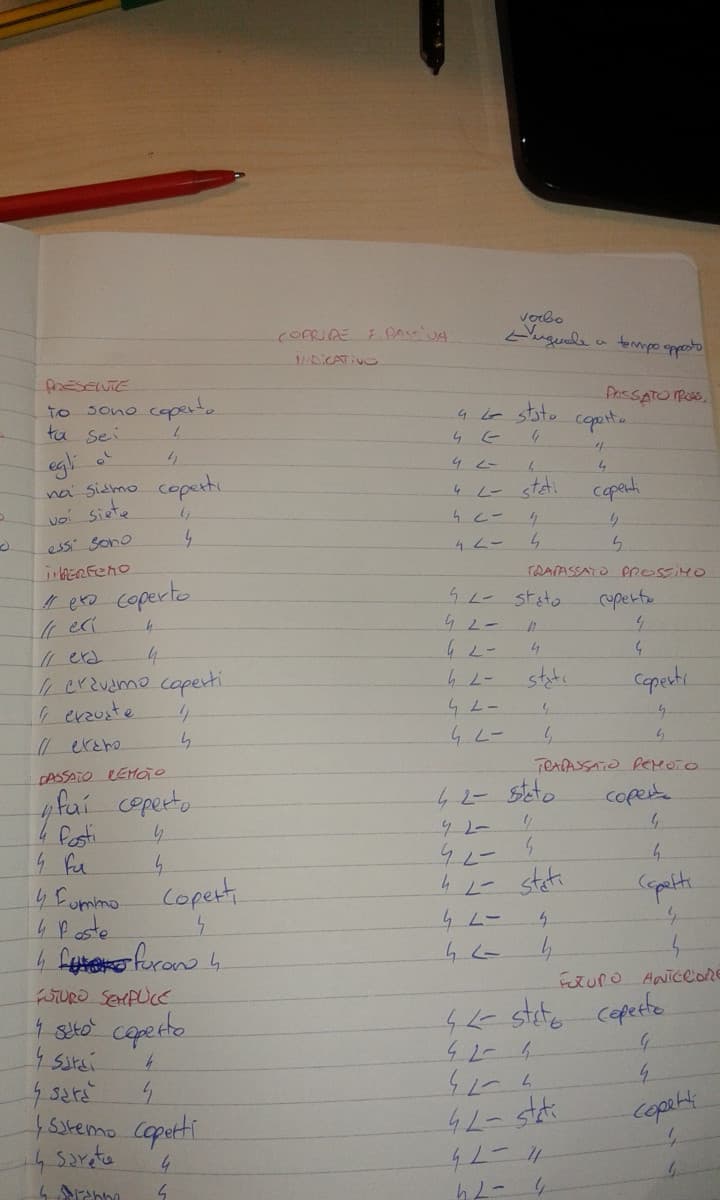 COPRIRE F. PASSIVA
verbo
<- V uguale a tempo opposto
INDICATIVO
PRESENTE
PASSATO PROS.
io sono coperto 〃 <- stato coperto
tu sei 〃 〃 <- 〃 〃
egli è 〃 〃 <- 〃 〃
noi siamo coperti 〃 <- stati coperti
voi siete 〃 〃 <- 〃 〃
essi sono 〃 〃 <- 〃 〃
IMPERFETTO
TRAPASSATO PROSSIMO
〃 ero coperto 〃 <- stato coperto
〃 eri 〃 〃 <- 〃 〃
〃 era 〃 〃 <- 〃 〃
〃 eravamo coperti 〃 <- stati coperti
〃 eravate 〃 〃 <- 〃 〃
〃 erano 〃 〃 <- 〃 〃
PASSATO REMOTO
TRAPASSATO REMOTO
〃 fui coperto 〃 <- stato coperto
〃 fosti 〃 〃 <- 〃 〃
〃 fu 〃 〃 <- 〃 〃
〃 Fummo coperti 〃 <- stati coperti
〃 foste 〃 〃 <- 〃 〃
〃 furono 〃 〃 <- 〃 〃
FUTURO SEMPLICE
FUTURO ANTERIORE
〃 sarò coperto 〃 <- stato coperto
〃 sarai 〃 〃 <- 〃 〃
〃 sarà 〃 〃 <- 〃 〃
〃 saremo coperti 〃 <- stati coperti
〃 sarete 〃 〃 <- 〃 〃
〃 saranno 〃 〃 <- 〃 〃